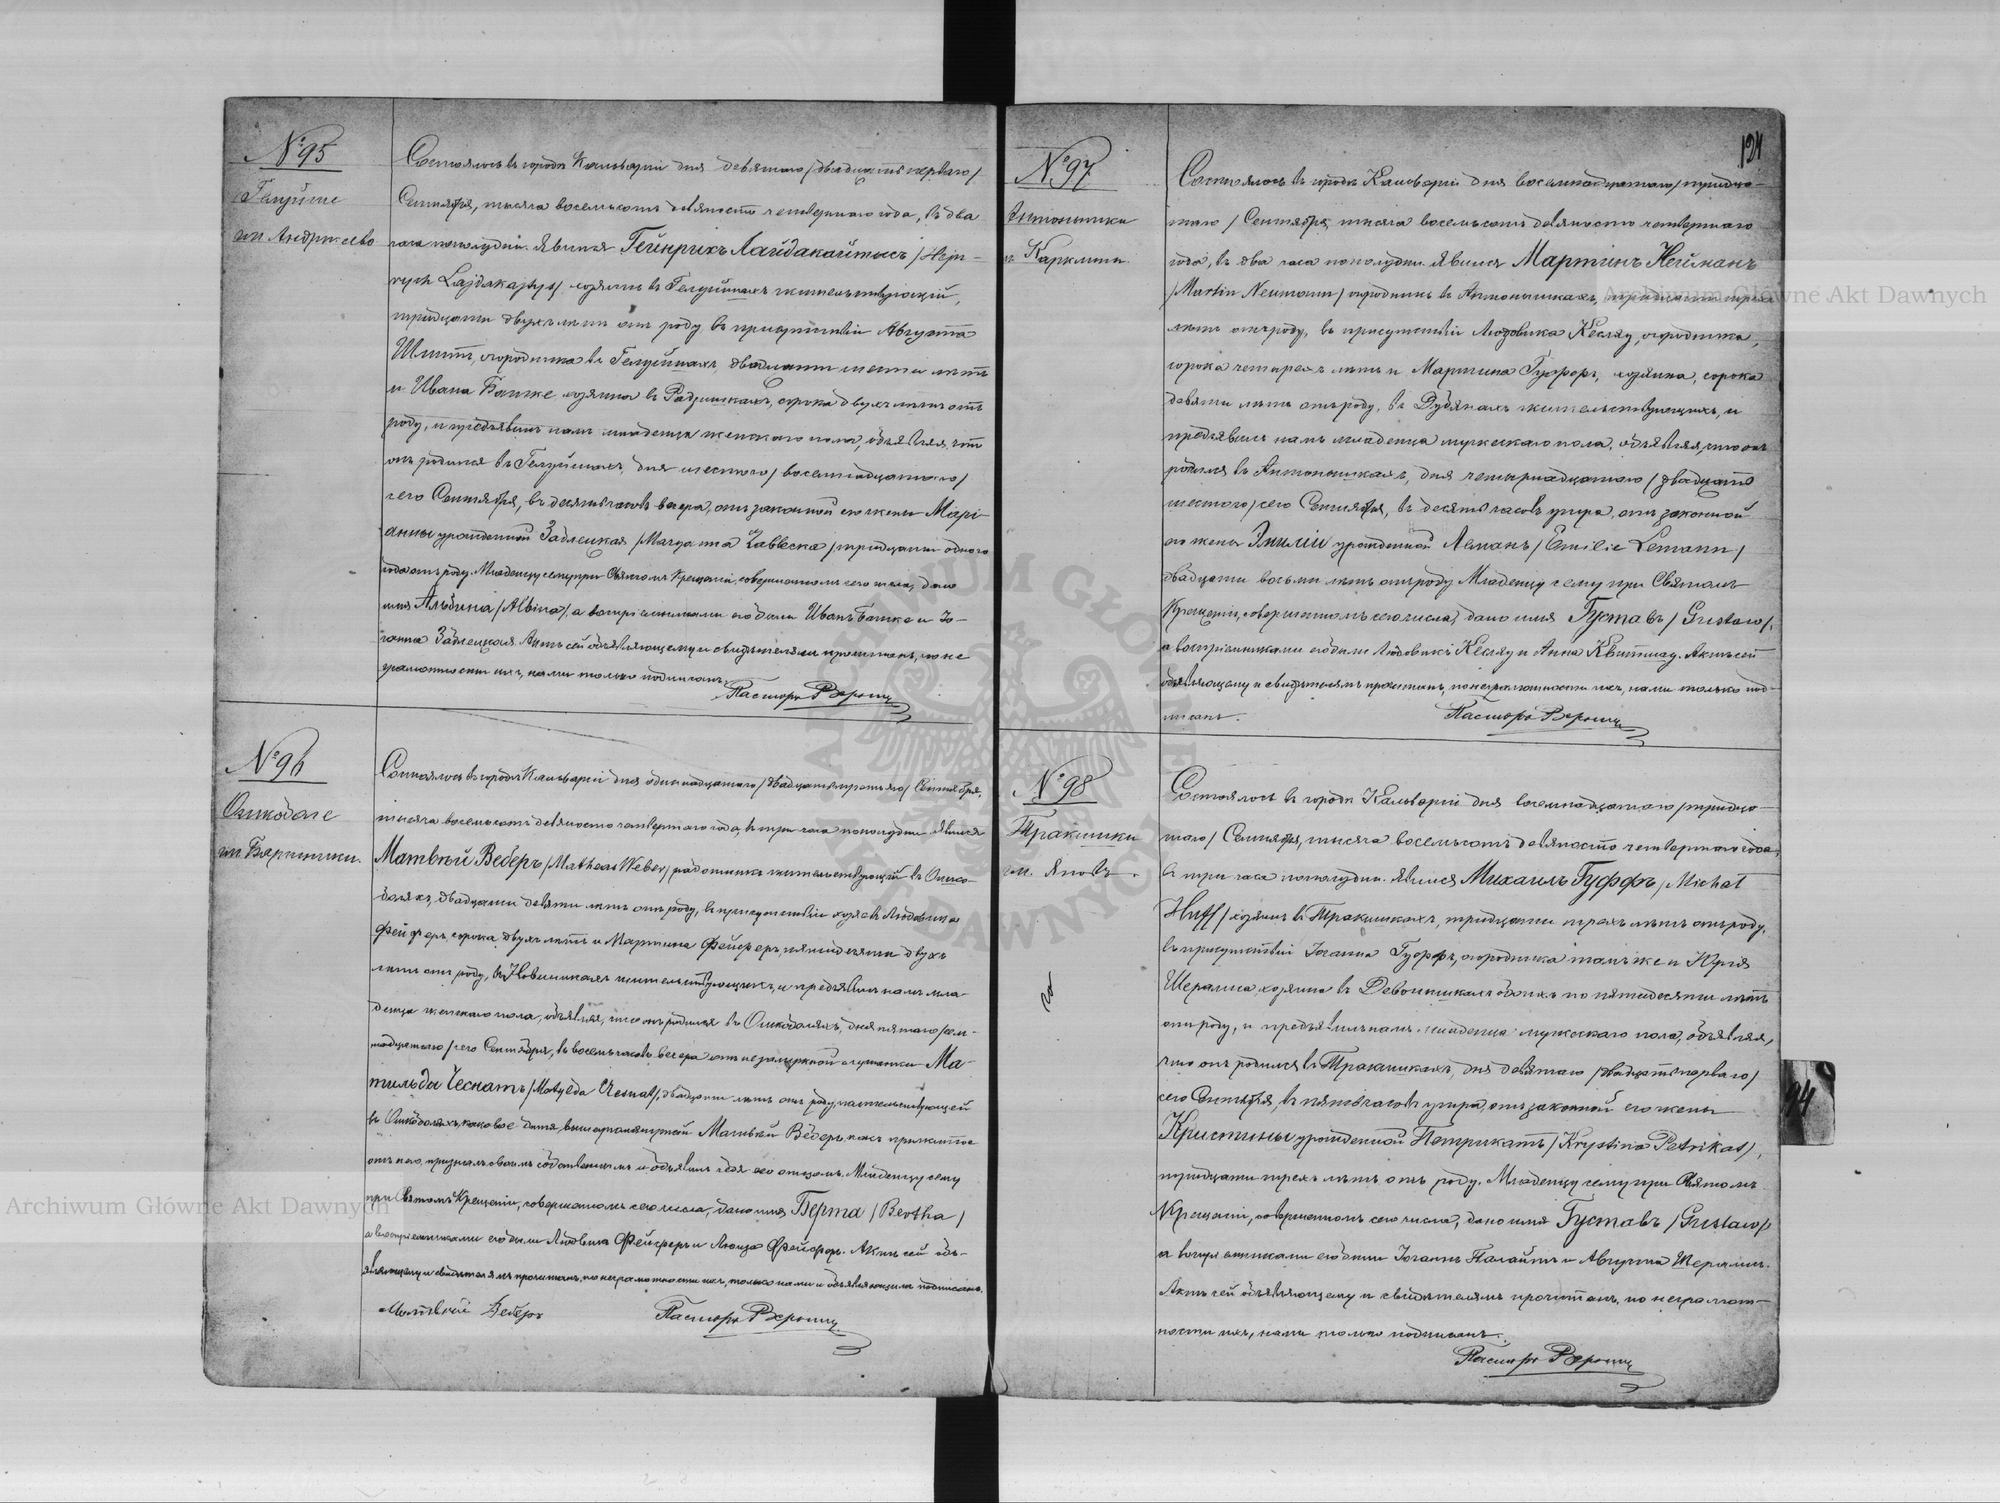 № 95
Гелуйше
гм. Андржеево
Состоялось въ городѣ Кальваріи дня девятаго /двадцать перваго/
Сентября, тысяча восемьсотъ девяносто четвертаго года, въ два
часа пополудни. Явился Гейнрихъ Лайдакайтысъ /Hejn-
rych Lajdakajtys/ хозяинъ въ Гелуйшахъ жительствующій,
тридцати двухъ лѣтъ отъ роду, въ присутствіи Августа
огородника въ Гелуйшахъ, двадцати шести лѣтъ
и Ивана Башке хозяина въ Радзишкахъ, сорока двухъ лѣтъ отъ
роду, и предъявилъ намъ младенца женскаго пола, объявляя, что
онъ родился въ Гелуйшахъ, дня шестого /восемнадцатаго/
сего Сентября, въ десять часовъ вечера, отъ законной его жены Марі-
анны урожденной Задлецкая /Maryanna / тридцати одного
года отъ роду. Младенцу сему при Святомъ Крещеніи, совершенномъ сего числа, дано
имя Альбина /Albina/, а воспріемниками его были Иванъ Башке и Іо-
ганна Задлецкая. Актъ сей объявляющему и свидѣтелямъ прочитанъ, по не
грамотности ихъ, нами только подписанъ.
Пасторъ
№ 96
Ошкоболе
гм. Бартники.
Состоялось въ городѣ Кальваріи дня одиннадцатаго /двадцать третьяго/ Сентября,
тысяча восемьсотъ девяносто четвертаго года, въ три часа пополудни. Явился
Матвѣй Веберъ /Matheas Weber/ работникъ жительствующій въ Ошко-
боляхъ, двадцати девяти лѣтъ отъ роду, въ присутствіи хозяевъ Людвика
Фейферъ, сорока двухъ лѣтъ и Мартина Фейферъ, пятидесяти двухъ
лѣтъ отъ роду, въ Новинникахъ жительствующихъ, и предъявилъ намъ мла-
денца женскаго пола, объявляя, что онъ родился въ Ошкоболяхъ, дня пятаго /сем-
надцатаго/ сего Сентября, въ восемь часовъ вечера отъ незамужной служанки Ма-
тильды Чеснатъ /Matylda Czesnat/, двадцати лѣтъ отъ роду, жительствующей
въ Ошкоболяхъ, каковое дитя, вышеупомянутый Матвѣй Веберъ, какъ прижитое
отъ него, призналъ своимъ собственнымъ и объявилъ себя его отцомъ. Младенцу сему
при Святомъ Крещеніи, совершенномъ сего числа, дано имя Берта /Bertha/
а воспріемниками его были Людвикъ Фейферъ и Луиза Фейферъ. Актъ сей объ-
являющему и свидѣтелямъ прочитанъ, по неграмотности ихъ, только нами и объявляющимъ подписанъ.
Матвѣй Веберъ Пасторъ
124
№ 97
Антонишки
г. Карклины
Состоялось въ городѣ Кальваріи дня восемнадцатаго /тридца-
таго/ Сентября, тысяча восемьсотъ девяносто четвертаго
года, въ два часа пополудни. Явился Мартинъ Нейманъ
/Martin Neumann/ огородникъ въ Антонишкахъ, тридцати трехъ
лѣтъ отъ роду, въ присутствіи Людвика Кеслау, огородника,
сорока четырехъ лѣтъ и Мартина Гуферъ, хозяина, сорока
девяти лѣтъ отъ роду, въ Дубянахъ жительствующихъ, и
предъявилъ намъ младенца мужескаго пола, объявляя, что онъ
родился въ Антонишкахъ, дня четырнадцатаго /двадцать
шестого/ сего Сентября, въ десять часовъ утра, отъ законной
его жены Эмиліи урожденной Леманъ /Emilie Lemann/
двадцати восьми лѣтъ отъ роду. Младенцу сему при Святомъ
Крещеніи, совершенномъ сего числа, дано имя Густавъ /Gustaw/,
а воспріемниками его были Людовикъ Кеслау и Анна . Актъ сей
объявляющему и свидѣтелямъ прочитанъ, по неграмотности ихъ, нами только под-
писанъ.
Пасторъ
№ 98
Тракишки
гм. Яновъ.
Состоялось въ городѣ Кальваріи дня восемнадцатаго /тридца-
таго/ Сентября, тысяча восемьсотъ девяносто четвертаго года,
въ три часа пополудни. Явился Михаилъ Гуффъ /Michał
Huff/ хозяинъ въ Тракишкахъ, тридцати трехъ лѣтъ отъ роду,
въ присутствіи Іоганна Гуффъ, огородника тамъ же и Юрія
Шералиса хозяина въ обоихъ по пятидесяти лѣтъ
отъ роду, и предъявилъ намъ младенца мужескаго пола, объявляя,
что онъ родился въ Тракишкахъ, дня девятаго /двадцать перваго/
сего Сентября, въ пять часовъ утра, отъ законной его жены
Кристины урожденной Петрикатъ /Krystina Petrikat/,
тридцати трехъ лѣтъ отъ роду. Младенцу сему при Святомъ
Крещеніи, совершенномъ сего числа, дано имя Густавъ /Gustaw/
а воспріемниками его были Іоганъ и Августа .
Актъ сей объявляющему и свидѣтелямъ прочитанъ, по неграмот-
ности ихъ, нами только подписанъ.
Пасторъ
94
Archiwum Główne Akt Dawnych
Archiwum Główne Akt Dawnych
ARCHIWUM GŁÓWNE AKT DAWNYCH